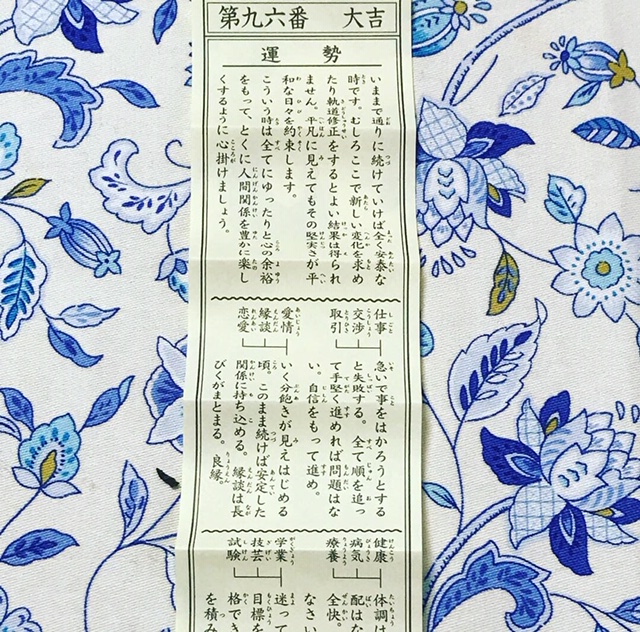 第九六番 大吉
運勢
いままで通りに続けていけば全く安泰な
時です。むしろここで新しい変化を求め
たり軌道修正をするとよい結果は得られ
ません。平凡に見えてもその堅実さが平
和な日々を約束します。
こういう時は全てにゆったりと心の余裕
をもって、とくに人間関係を豊かに楽し
くするように心掛けましょう。
仕事
交渉
取引
急いで事をはかろうとする
と失敗する。全て順を追っ
て手堅く進めれば問題はな
い。自信をもって進め。
愛情
縁談
恋愛
いく分飽きが見えはじめる
頃。このまま続けば安定した
関係に持ち込める。縁談は長
びくがまとまる。良縁。
健康
病気
療養
体調は
配はな
なさい
全快。
学業
技芸
試験
迷って
目標を
格でき
を積み